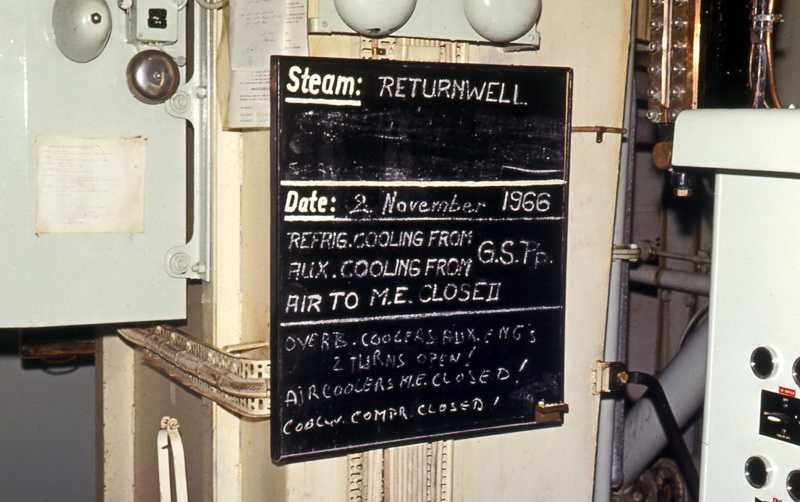 Steam: RETURNWELL
Date: 2 November 1966
REFRIG. COOLING FROM G.S.Pp.
AUX. COOLING FROM
AIR TO M.E. CLOSED
OVERB. COOLERS AUX. ENG's
2 TURNS OPEN!
AIRCOOLERS M.E. CLOSED!
COOLW. COMPR. CLOSED!